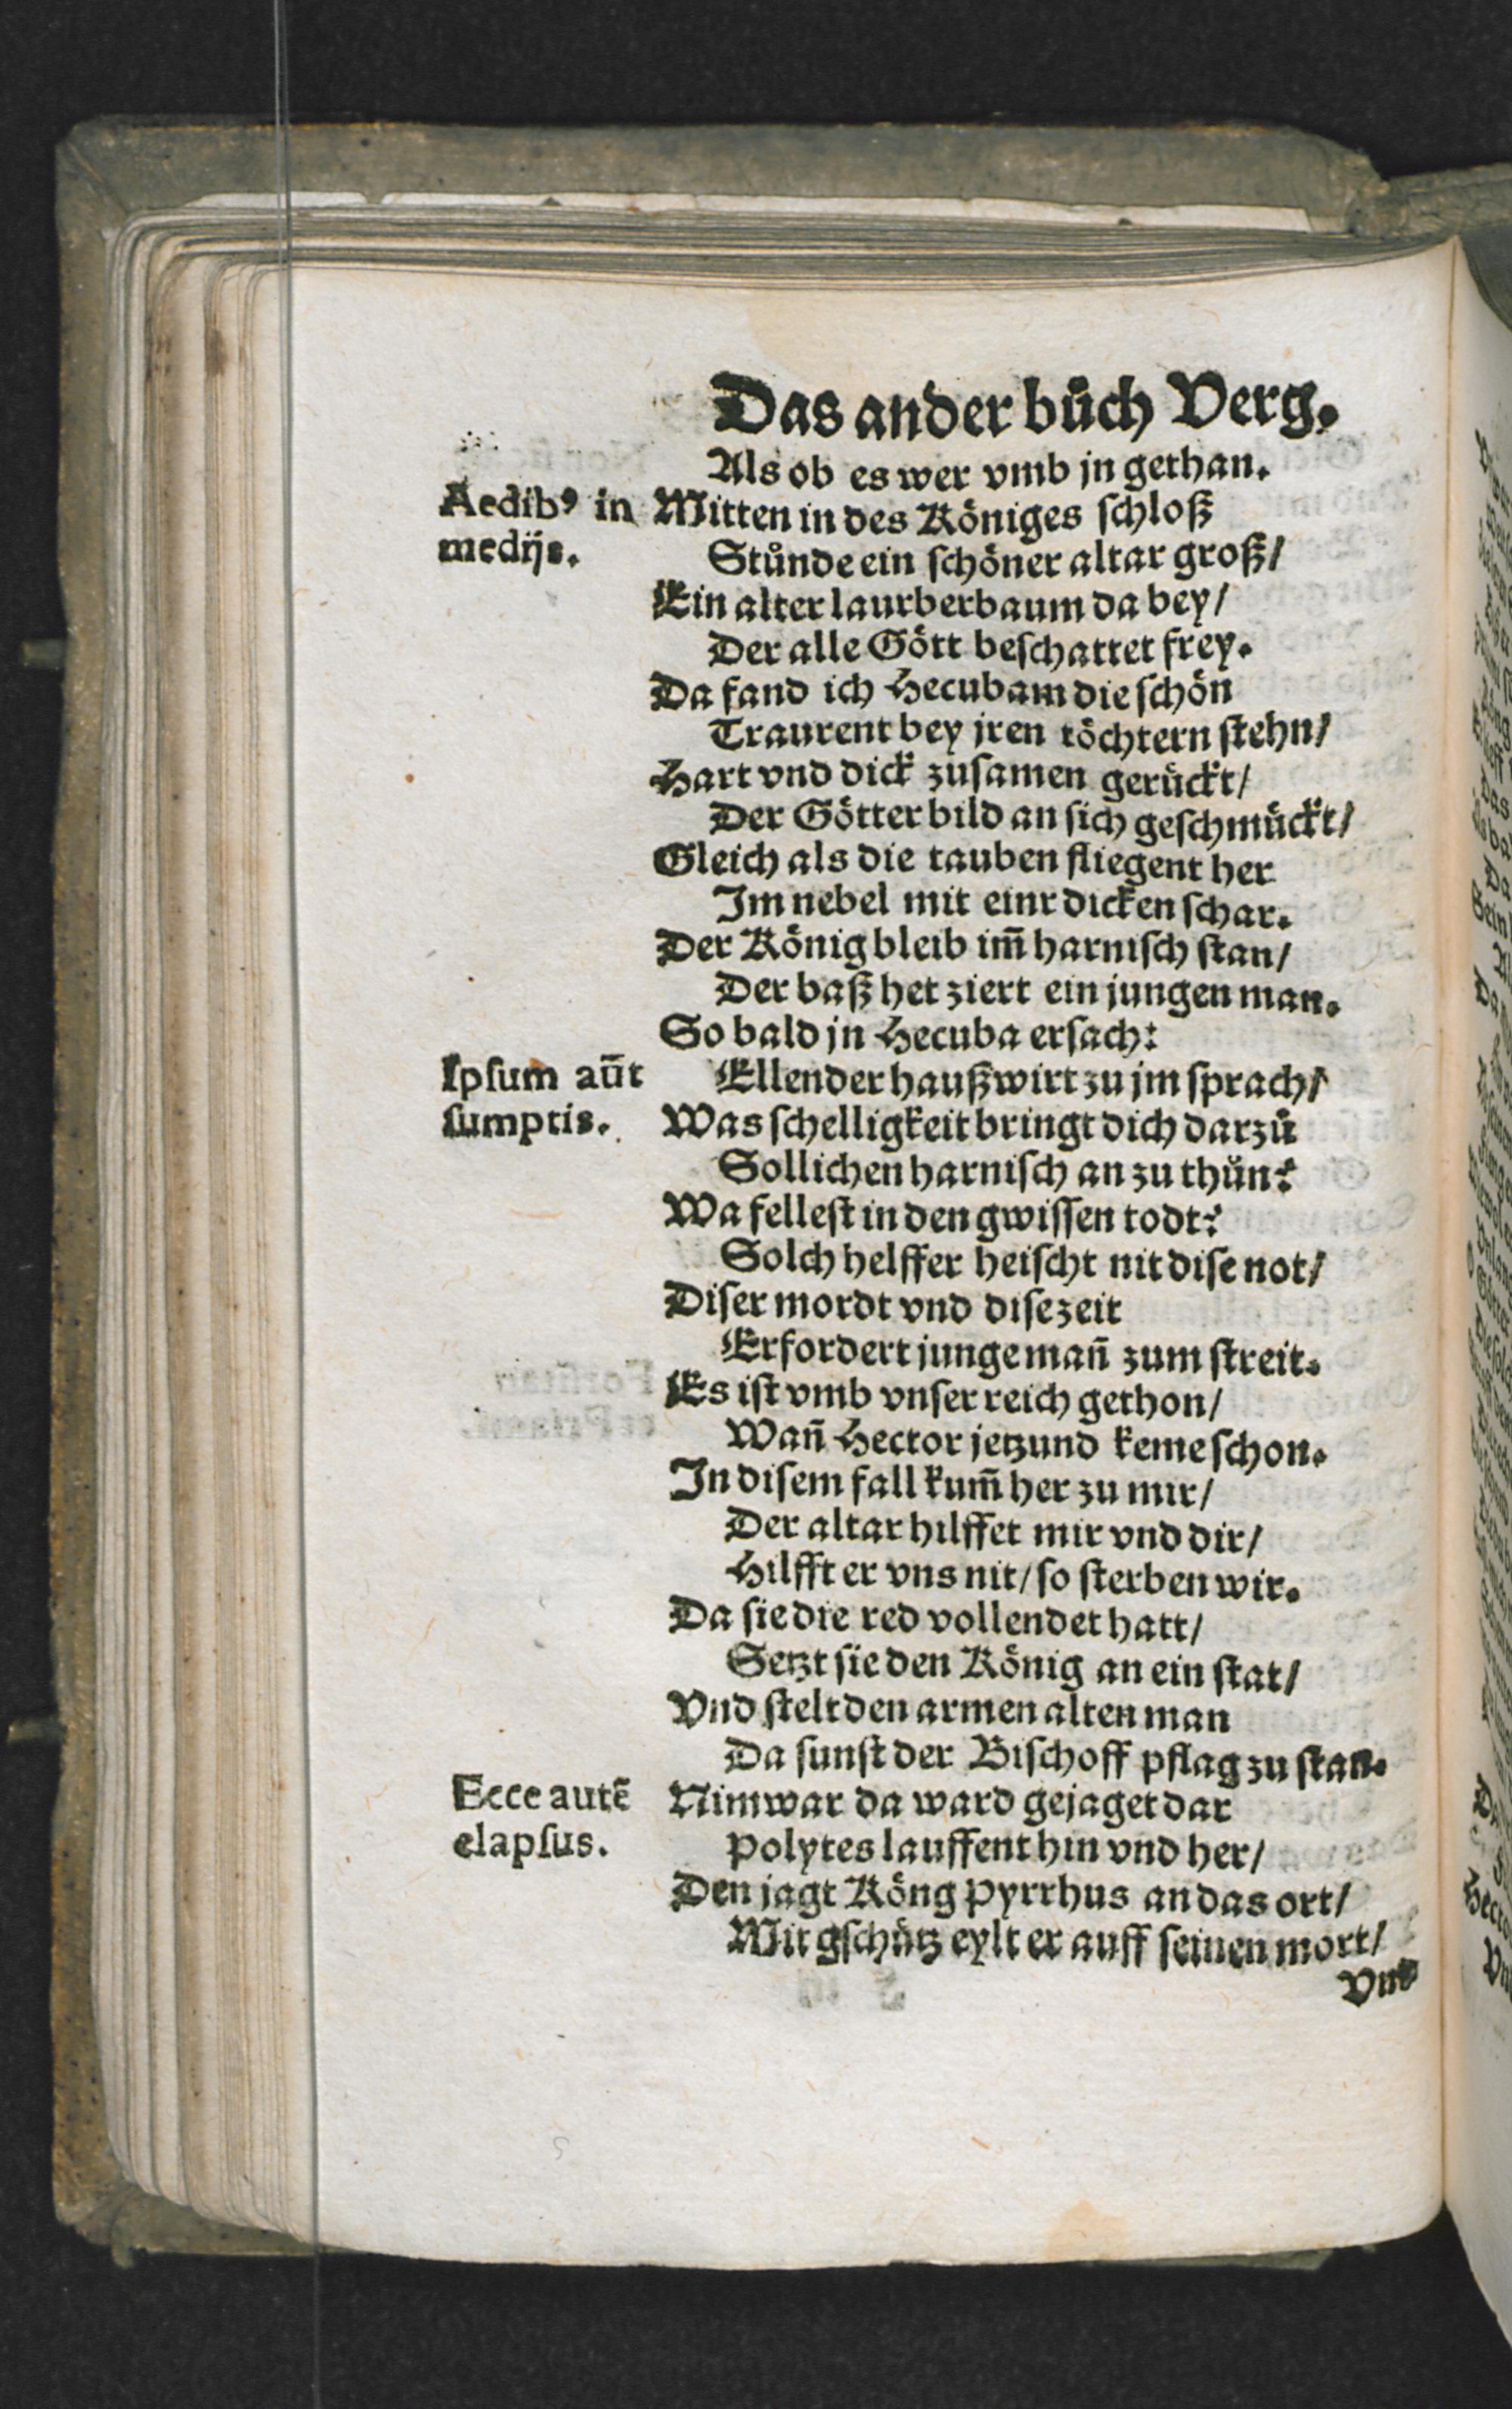 Das ander bůch Verg.
Als ob es wer vmb jn gethan.
Aedibꝰ in medijs.
Mitten in des Königes schloß
Stůnde ein schöner altar groß/
Ein alter laurberbaum da bey/
Der alle Gött beschattet frey.
Da fand ich Hecubam die schön
Traurent bey jren töchtern stehn/
Hart vnd dick zusamen gerückt/
Der Götter bild an sich geschmückt/
Gleich als die tauben fliegent her
Im nebel mit einr dicken schar.
Der König bleib im̄ harnisch stan/
Der baß het ziert ein jungen man.
So bald jn Hecuba ersach:
Ipsum aūt sumptis.
Ellender haußwirt zu jm sprach/
Was schelligkeit bringt dich darzů
Sollichen harnisch an zu thůn?
Wa fellest in den gwissen todt?
Solch helffer heischt nit dise not/
Diser mordt vnd dise zeit
Erfordert junge man̄ zum streit.
Es ist vmb vnser reich gethon/
Wan̄ Hector jetzund keme schon.
In disem fall kum̄ her zu mir/
Der altar hilffet mir vnd dir/
Hilfft er vns nit/ so sterben wir.
Da sie die red vollendet hatt/
Setzt sie den König an ein stat/
Vnd stelt den armen alten man
Da sunst der Bischoff pflag zu stan.
Ecce autē elapsus.
Nim war da ward gejaget dar
Polytes lauffent hin vnd her/
Den jagt Köng Pyrrhus an das ort/
Mit gschütz eylt er auff seinen mort/
Vnd